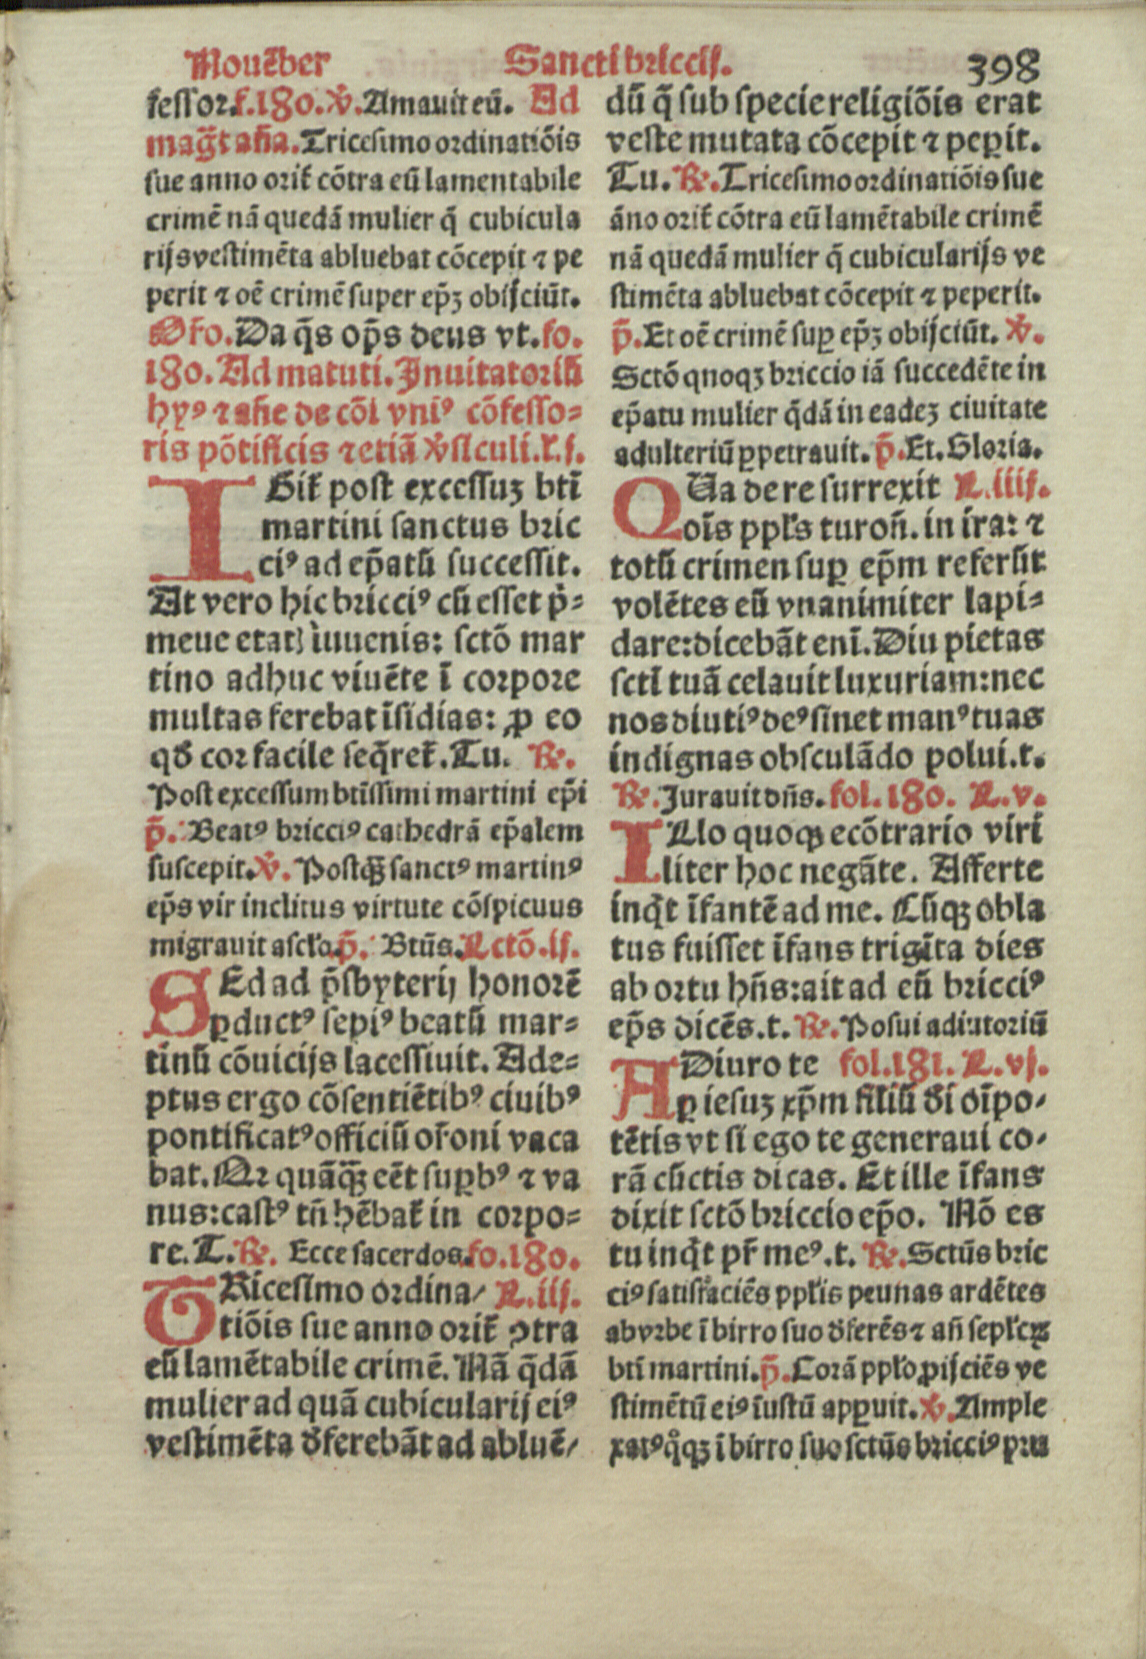 Nouēber Sancti briccij. 398
fessor.f.180. V̄. Amauit eū. Ad
mag̃t aña. Tricesimo ordinatiōis
sue anno orit̃ cōtra eū lamentabile
crimē nā quedā mulier q̄ cubicula
rijs vestimēta abluebat cōcepit ⁊ pe
perit ⁊ oē crimē super ep̄ꝫ obijciūt.
Oŕo. Da q̄s op̄s deus vt. fo.
180. Ad matuti. Inuitatoriū
hyꝰ ⁊ añe de cōi vniꝰ cōfesso=
ris pōtificis ⁊ etiā v̄siculi. L. j.
IGit̃ post excessuꝫ btī
martini sanctus bric
ciꝰ ad ep̄atū successit.
At vero hic bricciꝰ cū esset p̄=
meue etat) iuuenis: sctō mar
tino adhuc viuēte ī corpore
multas ferebat īsidias: ꝓ eo
qd̄ cor facile seq̄ret̃. Tu. ℟.
Post excessum btīssimi martini ep̄i
p̄. Beatꝰ bricciꝰ cathedrā ep̄alem
suscepit. V̄. Postq̄ꝫ sanctꝰ martinꝰ
ep̄s vir inclitus virtute cōspicuus
migrauit a sclo. p̄. Btūs. Lctō. ij.
SEd ad p̄sbyterij honorē
ꝑductꝰ sepiꝰ beatū mar=
tinū cōuicijs lacessiuit. Ade=
ptus ergo cōsentiētibꝰ ciuibꝰ
pontificatꝰ officiū oŕoni vaca
bat. Nā quāq̄ꝫ eēt suꝑbꝰ ⁊ va
nus: castꝰ tñ hēbat̃ in corpo=
re. T. ℟. Ecce sacerdos. fo. 180.
TRicesimo ordina/ L. iij.
tiōis sue anno orit̃ ꝯtra
eū lamētabile crimē. Nā q̄dā
mulier ad quā cubicularij eiꝰ
vestimēta d̄ferebāt ad abluē/
dū q̄ sub specie religiōis erat
veste mutata cōcepit ⁊ peꝑit.
Tu. ℟. Tricesimo ordinatiōis sue
āno orit̃ cōtra eū lamētabile crimē
nā quedā mulier q̄ cubicularijs ve
stimēta abluebat cōcepit ⁊ peperit.
p̄. Et oē crimē suꝑ ep̄ꝫ obijciūt. V̄.
Sctō qnoqꝫ briccio iā succedēte in
ep̄atu mulier q̄dā in eadeꝫ ciuitate
adulteriū ꝑpetrauit. p̄. Et. Gloria.
QUa de re surrexit L. iiij.
oīs ppls turoñ. in ira: ⁊
totū crimen suꝑ ep̄m referūt
volētes eū vnanimiter lapi=
dare: dicebāt enī. Diu pietas
sctī tuā celauit luxuriam: nec
nos diutiꝰ deꝰ sinet manꝰ tuas
indignas obsculādo polui. t.
℟. Jurauit dñs. fol. 180. L. v.
ILlo quoqꝫ ecōtrario viri
liter hoc negāte. Afferte
inq̄t īfantē ad me. Cūqꝫ obla
tus fuisset īfans trigīta dies
ab ortu hñs: ait ad eū bricciꝰ
ep̄s dicēs. t. ℟. Posui adiutoriū
ADiuro te fol. 181. L. vj.
ꝑ iesuꝫ xp̄m filiū d̄i oīpo/
tētis vt si ego te generaui co/
rā cūctis dicas. Et ille īfans
dixit sctō briccio ep̄o. Nō es
tu inq̄t pr̄ meꝰ. t. ℟. Sctūs bric
ciꝰ satisfaciēs pplis peunas ardētes
ab vrbe ī birro suo d̄ferēs ⁊ añ seplcꝝ
btī martini. p̄. Corā pplo ꝓijciēs ve
stimētū eiꝰ īustū apꝑuit. V̄. Ample
xatꝰ q̊qꝫ ī birro suo sctūs bricciꝰ pru